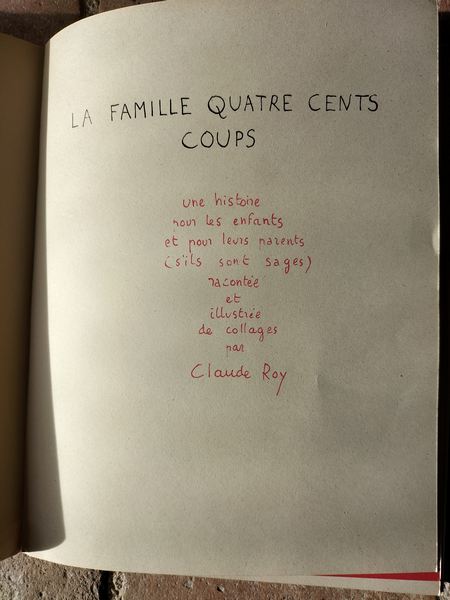 LA FAMILLE QUATRE CENTS
COUPS
une histoire
pour les enfants
et pour leurs parents
(s'ils sont sages)
racontée
et
illustrée
de collages
par
Claude Roy